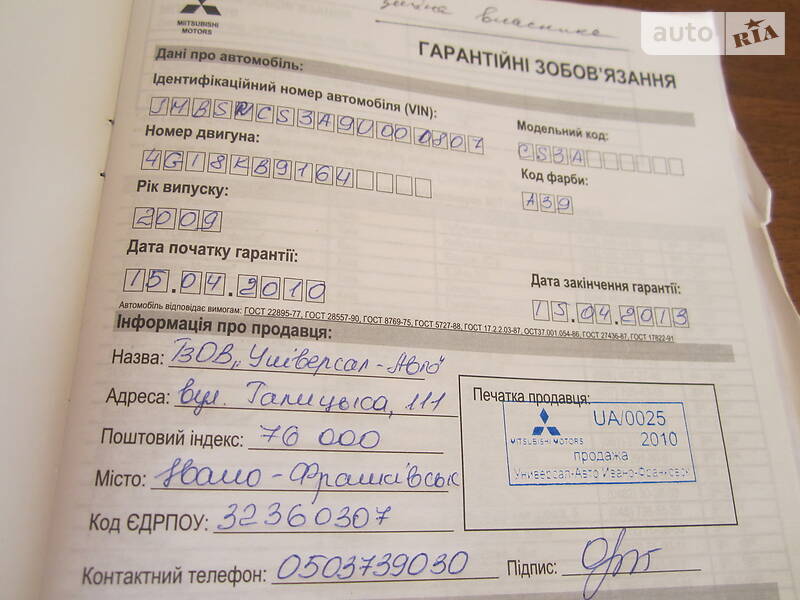 зміна власника
auto RIA
MITSUBISHI
MOTORS
ГАРАНТІЙНІ ЗОБОВ'ЯЗАННЯ
Дані про автомобіль:
Ідентифікаційний номер автомобіля (VIN):
JMBSNCS3A9U000807
Модельний код:
CS3A
Номер двигуна:
4G18KB9164
Код фарби:
A39
Рік випуску:
2009
Дата початку гарантії:
15.04.2010
Дата закінчення гарантії:
15.04.2013
Автомобіль відповідає вимогам: ГОСТ 22895-77, ГОСТ 28557-90, ГОСТ 8769-75, ГОСТ 5727-88, ГОСТ 17.2.2.03-87, ОСТ37.001.054-86, ГОСТ 27436-87, ГОСТ 17822-91
Інформація про продавця:
Назва: ТЗОВ „Універсал-Авто"
Адреса: вул. Галицька, 111
Поштовий індекс: 76 000
Місто: Івано-Франківськ
Код ЄДРПОУ: 32360307
Контактний телефон: 0503739030
Печатка продавця:
UA/0025
MITSUBISHI MOTORS 2010
продажа
Универсал-Авто Ивано-Франковск
Підпис: